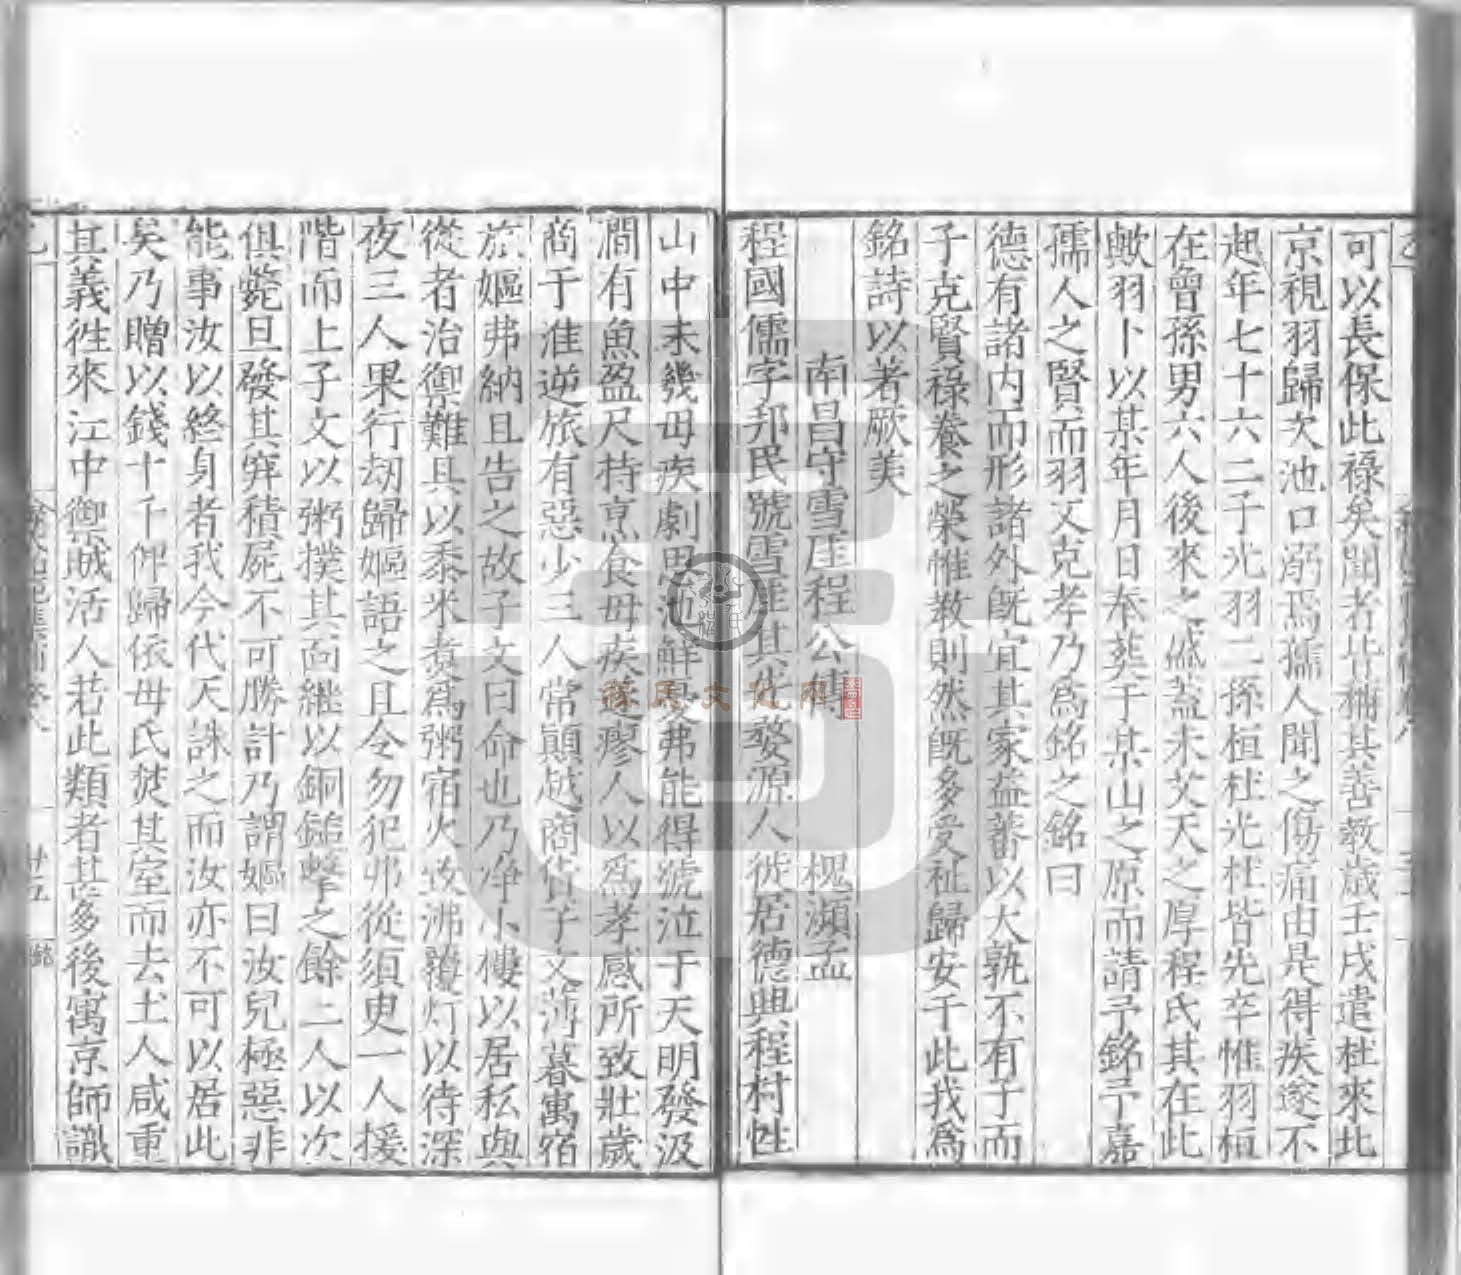 可以長保此祿矣聞者皆稱其善教歲壬戌遣杜來北
京視羽歸次池口溺焉孺人聞之傷痛由是得疾遂不
起年七十六二子光羽二孫桓杜光杜皆先卒惟羽桓
在曾孫男六人後來之盛蓋未艾天之厚程氏其在此
歟羽卜以某年月日奉葬于某山之原而請予銘予嘉
孺人之賢而羽又克孝乃為銘之銘曰
德有諸內而形諸外旣宜其家益蕃以大孰不有子而
子克賢祿養之榮惟教則然旣多受祉歸安于此我為
銘詩以著厥美
南昌守雪厓程公傳 槐瀕孟
程國儒字邦民號雪厓其先婺源人徙居德興程村性
山中未幾母疾劇思池鮮夏弗能得號泣于天明發汲
澗有魚盈尺持烹食母疾遂瘳人以為孝感所致壯歲
商于淮逆旅有惡少三人常顛越商貨子文薄暮寓宿
於嫗弗納且告之故子文曰命也乃淨小樓以居私與
從者治禦難具以黍米煑為粥宿火致沸覆灯以待深
夜三人果行刼歸嫗語之且令勿犯弗從須臾一人援
階而上子文以粥撲其面繼以銅鎚擊之餘二人以次
俱斃旦發其穽積屍不可勝計乃謂嫗曰汝兒極惡非
能事汝以終身者我今代天誅之而汝亦不可以居此
矣乃贈以錢十千俾歸依母氏焚其室而去土人咸重
其義徃來江中禦賊活人若此類者甚多後寓京師識
廿五